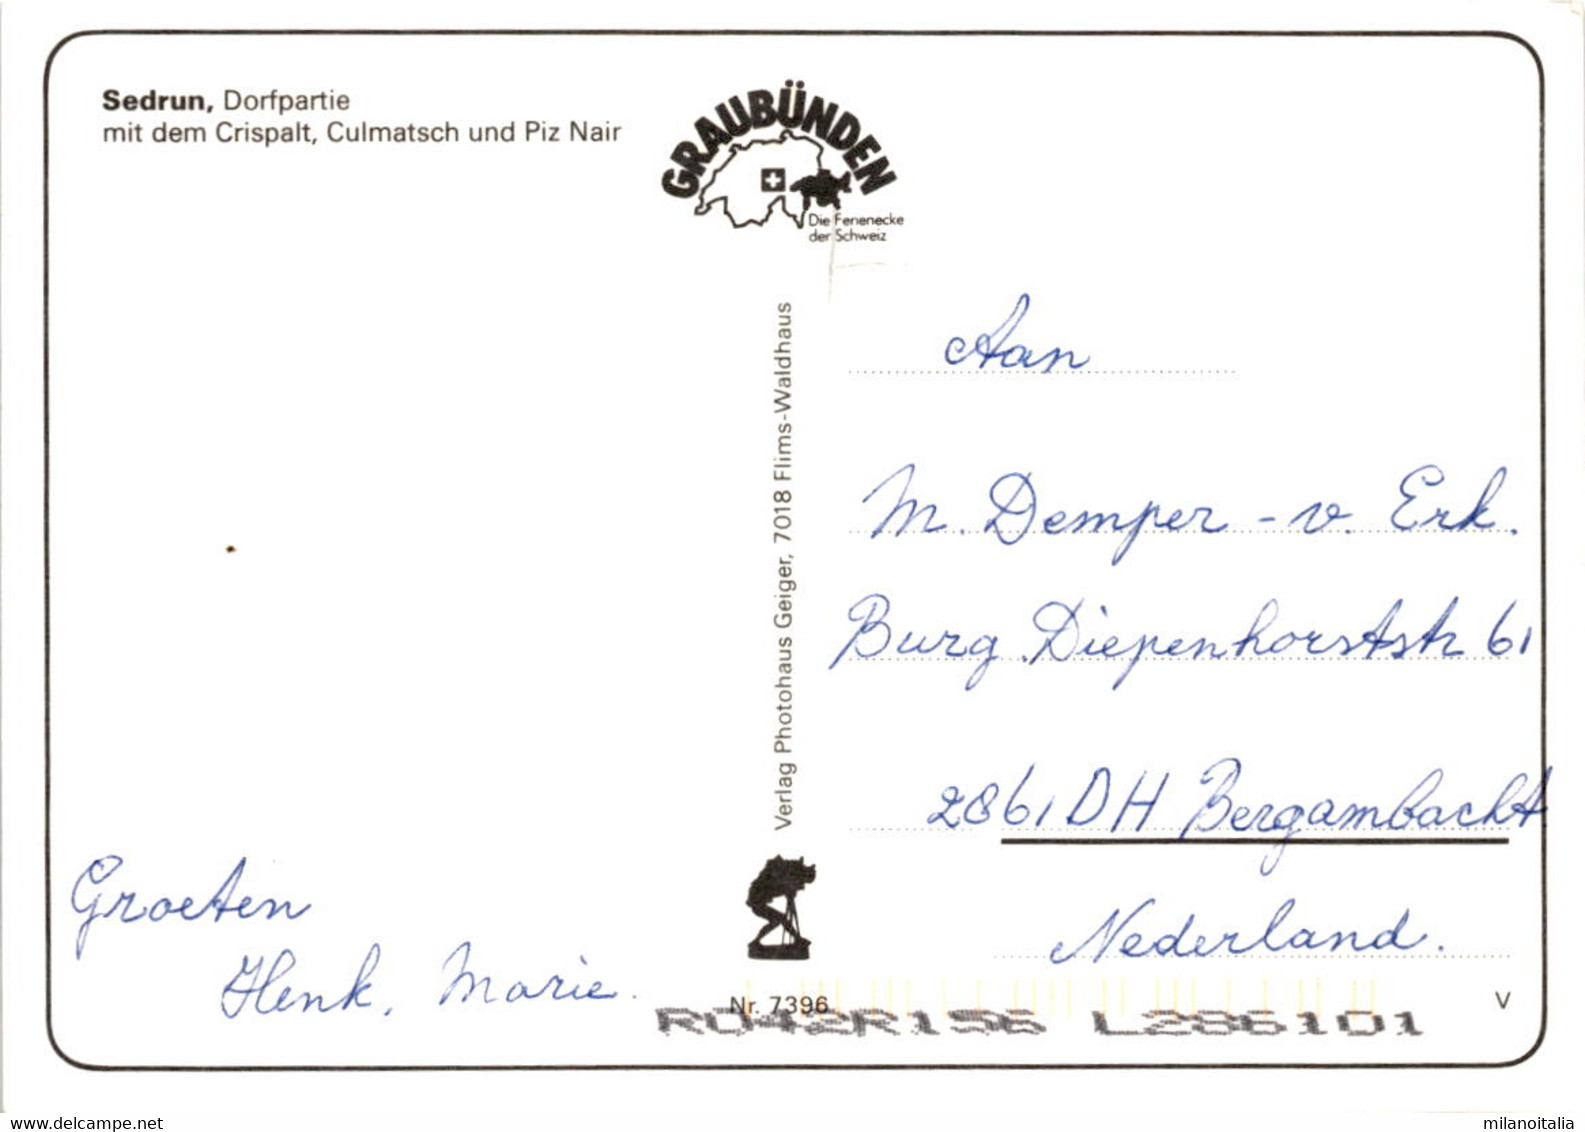 Sedrun, Dorfpartie
mit dem Crispalt, Culmatsch und Piz Nair
GRAUBÜNDEN
Die Ferienecke
der Schweiz
Verlag Photohaus Geiger, 7018 Flims-Waldhaus
Aan
M. Demper - v. Erk.
Burg. Diepenhorststr 61
2861 DH Bergambacht
Nederland.
Groeten
Henk, Marie.
Nr. 7396
V
R042R156 L286101
www.delcampe.net
milanoitalia